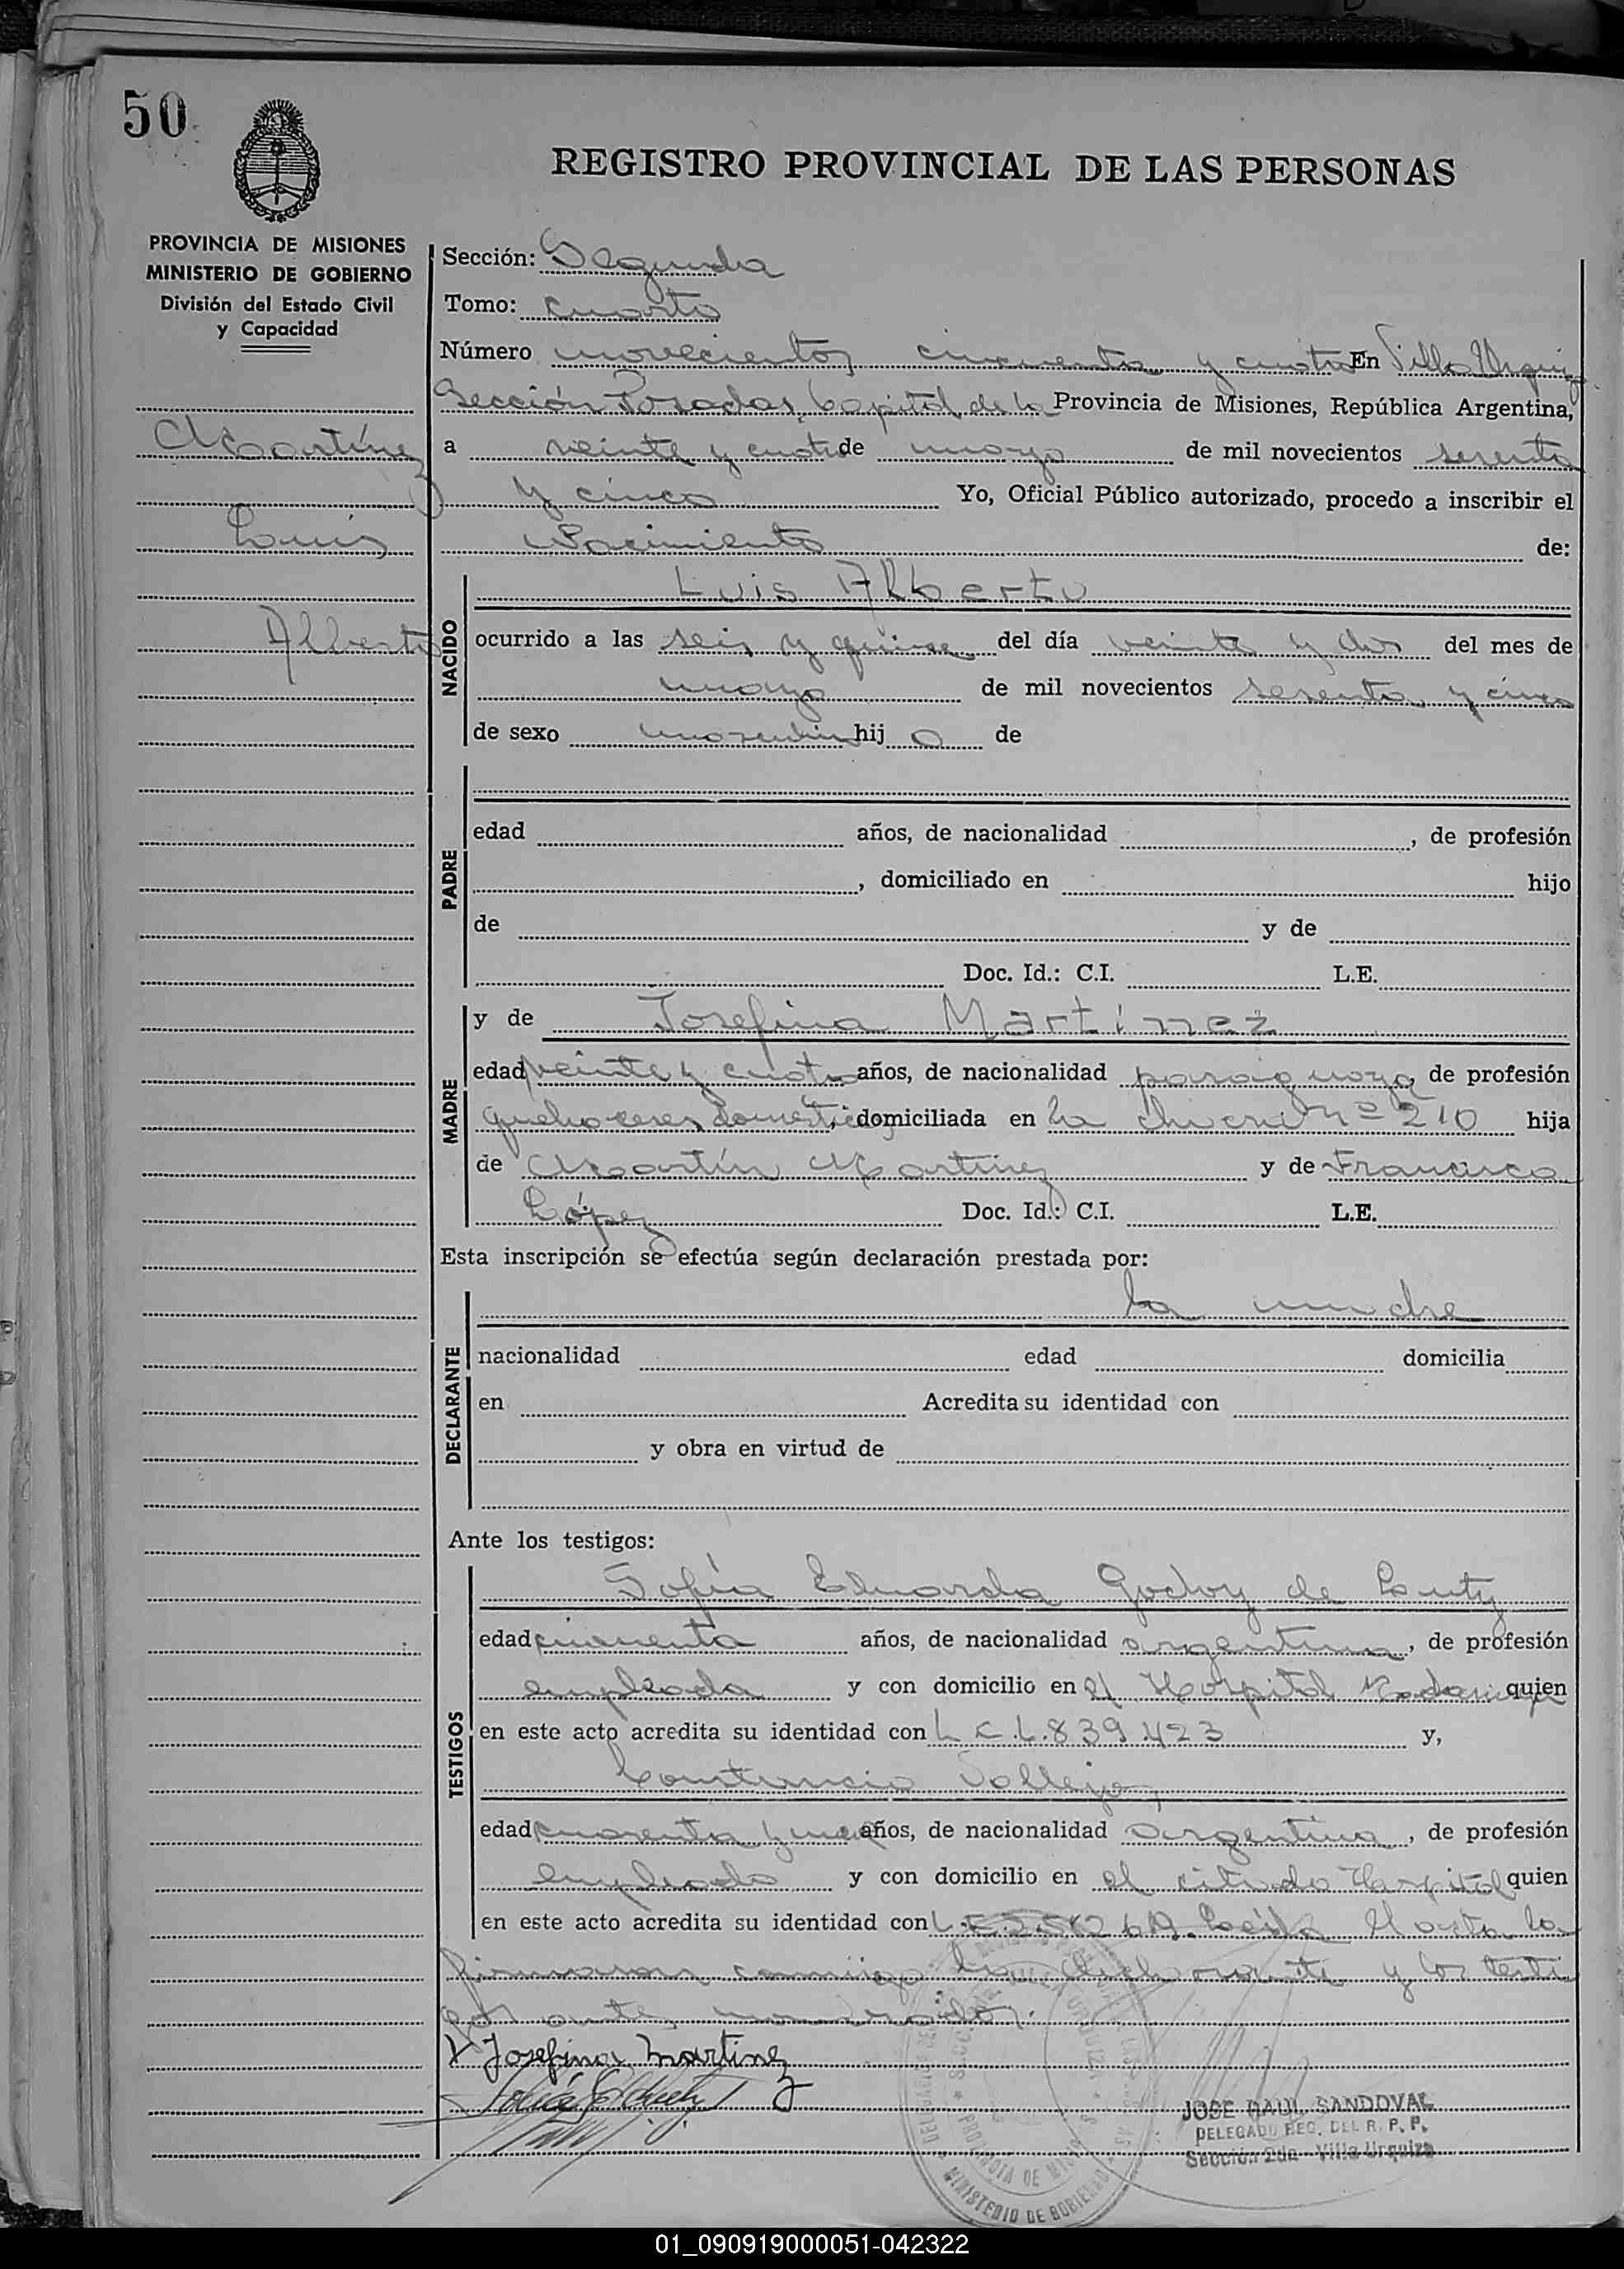 50
REGISTRO PROVINCIAL DE LAS PERSONAS
PROVINCIA DE MISIONES
MINISTERIO DE GOBIERNO
División del Estado Civil
y Capacidad
Martínez
Luis
Alberto
Sección: Segunda
Tomo: cuarto
Número novecientos cincuenta y cuatro En Villa Urquiza
Sección Posadas, Capital de la Provincia de Misiones, República Argentina,
a veinte y cuatro de mayo de mil novecientos sesenta
y cinco Yo, Oficial Público autorizado, procedo a inscribir el
Nacimiento de:
NACIDO
Luis Alberto
ocurrido a las seis y quince del día veinte y dos del mes de
mayo de mil novecientos sesenta y cinco
de sexo masculino hijo de
PADRE
edad años, de nacionalidad , de profesión
, domiciliado en hijo
de y de
Doc. Id.: C.I. L.E.
MADRE
y de Josefina Martínez
edad veinte y cuatro años, de nacionalidad paraguaya, de profesión
quehaceres domésticos, domiciliada en La Nº 210 hija
de Martín Martínez y de Francisca
López Doc. Id.: C.I. L.E.
Esta inscripción se efectúa según declaración prestada por:
DECLARANTE
la madre
nacionalidad edad domicilia
en Acredita su identidad con
y obra en virtud de
Ante los testigos:
TESTIGOS
Sofía Eduarda Godoy de
edad cincuenta años, de nacionalidad argentina, de profesión
empleada y con domicilio en el Hospital quien
en este acto acredita su identidad con L.C. 839.423 y,
Vallejos
edad cuarenta y años, de nacionalidad argentina, de profesión
empleado y con domicilio en el citado Hospital quien
en este acto acredita su identidad con L.E. Leída el acta la
firmaron conmigo la declarante y los testi
gos antes nombrados.
Josefina Martinez
JOSE RAUL SANDOVAL
DELEGADO REG. DEL R. P. P.
Sección 2da - Villa Urquiza
MINISTERIO DE GOBIERNO
01_090919000051-042322